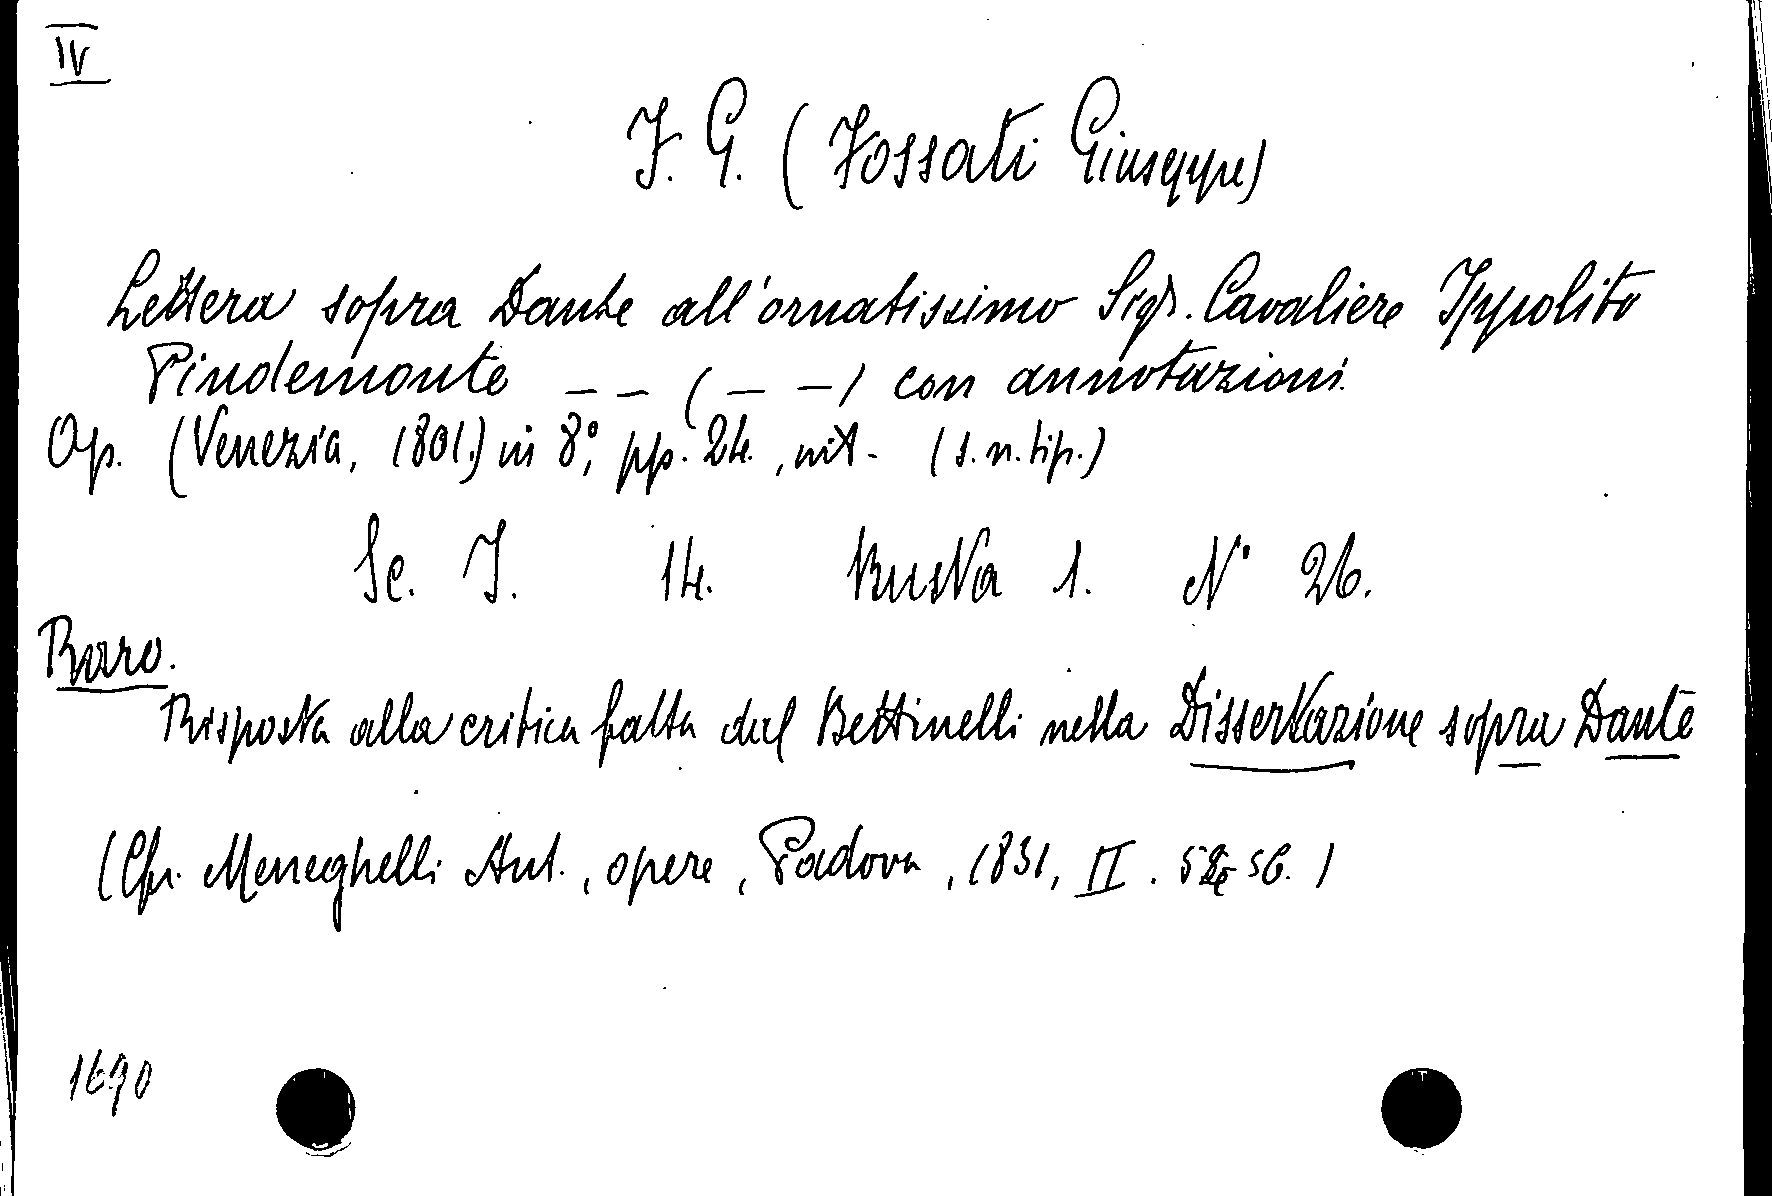 IV
F. G. (Fossati Giuseppe)
Lettera sopra Dante all'ornatissimo Sigr. Cavaliere Ippolito
Pindemonte _ _ ( _ _ ) con annotazioni.
Op. (Venezia, 1801.) in 8°, pp. 24., nit. (s. n. tip.)
Sc. I. 14. Busta 1. N° 26.
Raro.
Risposta alla critica fatta dal Bettinelli nella Dissertazione sopra Dante
(Cfr. Meneghelli Ant., opere, Padova, 1831, II. 56.)
1690